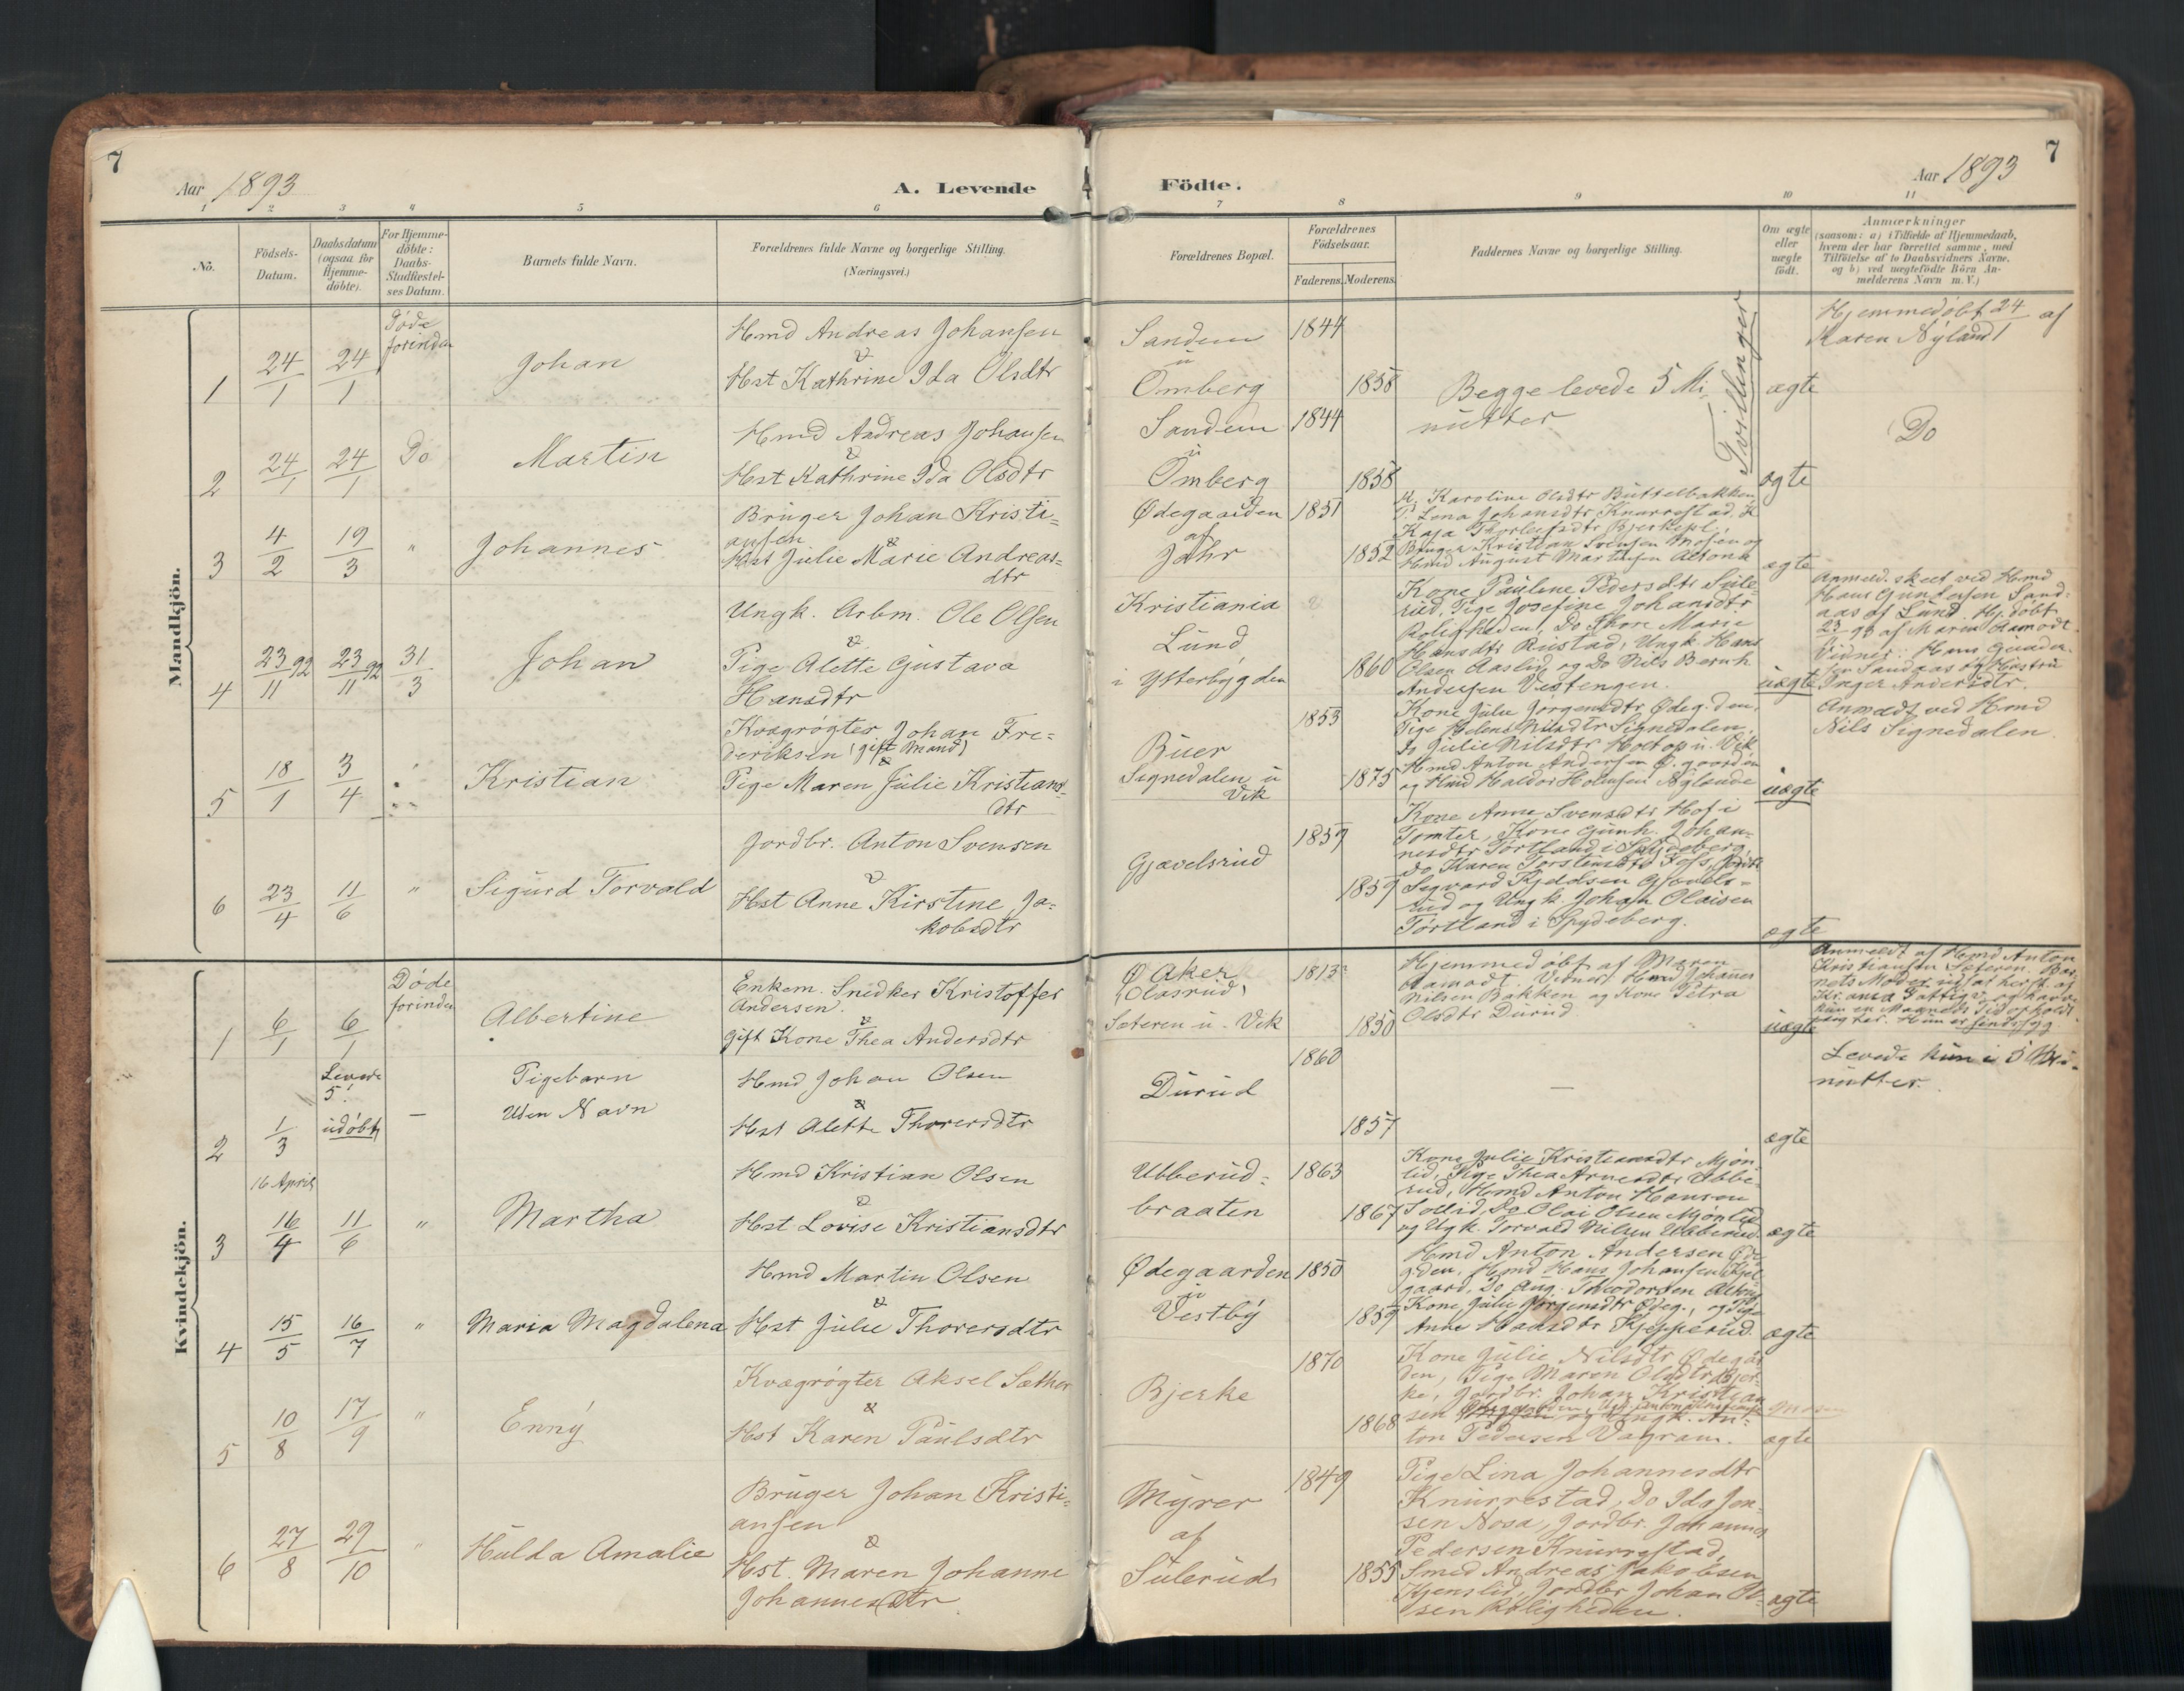 7
Aar 1893
A. Levende
Födte.
Aar 1893
7
1 2 3 4 5 6 7 8 9 10 11
No.
Födsels-
Datum.
Daabsdatum
(ogsaa for
Hjemme-
döbte).
For Hjemme-
döbte:
Daabs-
Stadfæstel-
ses Datum.
Barnets fulde Navn.
Forældrenes fulde Navne og borgerlige Stilling.
(Næringsvei.)
Forældrenes Bopæl.
Forældrenes
Födselsaar.
Faderens. Moderens.
Faddernes Navne og borgerlige Stilling.
Om ægte
eller
uægte
födt.
Anmærkninger
(saasom: a) i Tilfælde af Hjemmedaab,
hvem der har forrettet samme, med
Tilföielse af to Daabsvidners Navne,
og b) ved uægtefödte Börn An-
melderens Navn m. V.)
Mandkjön.
1
24/1
24/1
Døde
forinden
Johan
Hmd Andreas Johansen
&
Hst Kathrine Ida Olsdtr
Sandem
u
Omberg
1844
1858
Begge levede 5 Mi-
nutter
Tvillinger
ægte
Hjemmedøbt 24/1 af
Karen Nyland
2
24/1
24/1
Do
Martin
Hmd Andreas Johansen
&
Hst Kathrine Ida Olsdtr
Sandem
u
Omberg
1844
1858
ægte
Do
3
4/2
19/3
"
Johannes
Bruger Johan Kristi=
ansen
&
Hst Julie Marie Andreas=
dtr
Ødegaarden
af
Jahr
1851
1852
K. Karoline Olsdtr Buttelbakken
P. Lina Johansdtr Knurrestad. K
Kaja Thorleifsdtr
Bruger Kristian Svensen Mosen og
Hmd August Martinsen Altona
ægte
4
23/11 92
23/11 92
31/3
Johan
Ungk. Arbm. Ole Olsen
&
Pige Alette Gustava
Hansdtr
Kristiania
Lund
i Ytterbygden
1860
Kone Pauline Pedersdtr Sule-
rud, Pige Josefine Johansdtr
Roligheden, Do Thore Marie
Hansdtr Rustad, Ungk. Hans
Olsen Aaslid og Do Nils Bernh.
Andersen Vestengen.
uægte
Anmeld. skeet ved Hmd
Hans Gundersen Sand=
aas af Lund. Hj.døbt
23/11 93 af Maren Aamodt.
Vidner: Hans Gunder-
sen Sandaas og Hustru
Inger Andersdtr.
5
18/1
3/4
Kristian
Kvægrøgter Johan Fre=
deriksen (gift Mand)
&
Pige Maren Julie Kristians=
dtr
Buer
Signedalen u
Vik
1853
1875
Kone Julie Jørgensdtr Ødeg.den,
Pige Helene Nilsdtr Signedalen,
Do Julie Nilsdtr Holtop u. Vik
Hmd Anton Andersen Ø.gaarden
og Hmd Haldor Holmsen Nylænde
uægte
Anmeldt ved Hmd
Nils Signedalen.
6
23/4
11/6
"
Sigurd Torvald
Jordbr. Anton Svensen
&
Hst Anne Kirstine Ja=
kobsdtr
Gjævelsrud
1859
1859
Kone Anne Svensdtr Hof i
Tomter, Kone Gunh. Johan-
nesdtr Tørtland i Spydeberg,
Do Karen Torstensdtr Foss, Jordbr
Segvard Kjeldsen Gjævels-
rud og Ungk. Johan Olaisen
Tørtland i Spydeberg.
ægte
Kvindekjön.
1
6/1
6/1
Døde
forinden
Albertine
Enkem. Snidker Kristoffer
Andersen.
&
Gift Kone Thea Andersdtr
Ø Aker
(Olasrud)
Sæteren u. Vik
1813
1850
Hjemmedøbt af Maren
Aamodt. Vidner: Hmd Johannes
Nilsen Bakken og Kone Petra
Olsdtr Durud
uægte
Anmeldt af Hmd Anton
Kristiansen Sæteren. Bar-
nets Moder
Hun er sindssyg.
2
1/3
Levede
5!
udøbt,
—
Pigebarn
Uden Navn
Hmd Johan Olsen
&
Hst Alette Thorersdtr
Durud
1860
1857
—
ægte
Levede kun i 5 Mi-
nutter.
3
16 April
16/4
11/6
"
Martha
Hmd Kristian Olsen
&
Hst Lovise Kristiansdtr
Ubberud=
braaten
1863
1867
Kone Julie Kristiansdtr Mjøn-
lid, Pige Thea Arnesdtr Ubbe-
rud, Hmd Anton Hansen
Sollid, Do Olai Olsen Mjønlid
og Ugk. Torvald Nilsen Ubberud.
ægte
4
15/5
16/7
"
Maria Magdalena
Hmd Martin Olsen
&
Hst Julie Thorersdtr
Ødegaarden
u
Vestby
1850
1859
Hmd Anton Andersen Øde-
g.den, Hmd Hans Johansen Kjel-
gaard, Do Aug. Theodorsen Altona
Kone Julie Jørgensdtr Ødeg., og Pige
Anne Hansdtr Kjepperud.
ægte
5
10/8
17/9
"
Enny
Kvægrøgter Aksel Sæther
&
Hst Karen Paulsdtr
Bjerke
1870
1868
Kone Julie Nilsdtr Ødegår
den, Pige Maren Olsdtr Bjer-
ke, Jordbr. Johan Kristian
sen og Ungk. An-
ton Pedersen Vagram.
Mosen
ægte
6
27/8
29/10
"
Hulda Amalie
Bruger Johan Kristi=
ansen
&
Hst. Maren Johanne
Johannesdtr
Myrer
af
Sulerud
1849
1855
Pige Lina Johannesdtr
Knurrestad, Do Ida Jen-
sen Nosa, Jordbr. Johannes
Pedersen Knurrestad,
Smed Andreas Jakobsen
Kjenslid, Jordbr Johan Ol-
sen Roligheden.
ægte